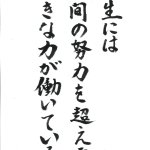 生には
間の努力を超えた
きな力が働いている